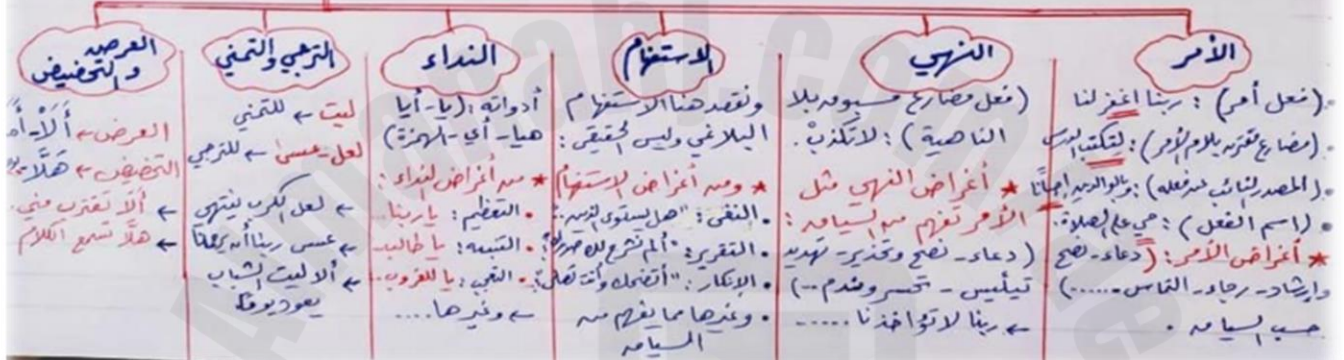 الأمر
(فعل أمر): ربنا اغفر لنا
(مضارع مقترن بلام الأمر): لتكتب الدرس
(المصدر النائب عن فعله): وبالوالدين إحسانًا
(اسم الفعل): حي على الصلاة.
* أغراض الأمر: (دعاء - نصح
وإرشاد - رجاء - التماس ......)
حسب السياق.
النهي
(فعل مضارع مسبوق بلا
الناهية): لا تكذب.
* أغراض النهي مثل
الأمر تفهم من السياق:
(دعاء - نصح وتحذير - تهديد
تيئيس - تحسر وندم --)
← ربنا لا تؤاخذنا .....
الاستفهام
ونقصد هنا الاستفهام
البلاغي وليس الحقيقي:
* ومن أغراض الاستفهام
• النفي: "هل يستوي الذين..."
• التقرير: "ألم نشرح لك صدرك"
• الإنكار: "أتضحك وأنت تصلي؟"
• وغيرها مما يفهم من
السياق
النداء
أدواته: (يا - أيا
هيا - أي - الهمزة)
* من أغراض النداء:
• التعظيم: يا ربنا..
• التنبيه: يا طالب..
• التعجب: يا للغروب..
← وغيرها ....
الترجي والتمني
ليت ← للتمني
لعل - عسى ← للترجي
← لعل الكرب ينتهي
← عسى ربنا أن يرحمنا
← ألا ليت الشباب
يعود يومًا
العرض والتحضيض
العرض ← ألا -
التحضيض ← هلّا
← ألا تقترب مني.
← هلّا تسمع الكلام